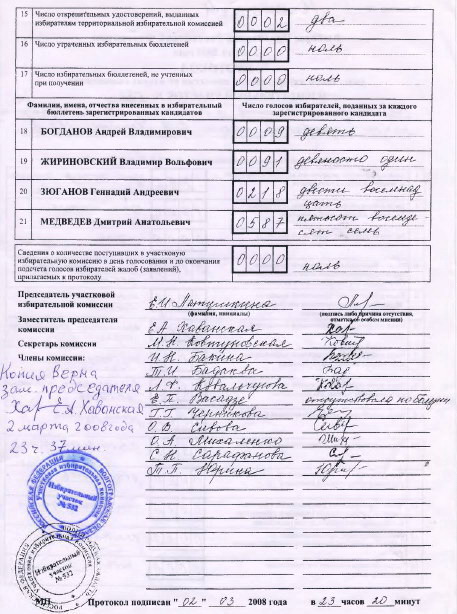 15 Число открепительных удостоверений, выданных избирателям территориальной избирательной комиссией 0002 два
16 Число утраченных избирательных бюллетеней 0000 ноль
17 Число избирательных бюллетеней, не учтенных при получении 0000 ноль
Фамилии, имена, отчества внесенных в избирательный бюллетень зарегистрированных кандидатов
Число голосов избирателей, поданных за каждого зарегистрированного кандидата
18 БОГДАНОВ Андрей Владимирович 0009 девять
19 ЖИРИНОВСКИЙ Владимир Вольфович 0091 девяносто один
20 ЗЮГАНОВ Геннадий Андреевич 0218 двести восемнад
цать
21 МЕДВЕДЕВ Дмитрий Анатольевич 0587 пятьсот восемде-
сят семь
Сведения о количестве поступивших в участковую избирательную комиссию в день голосования и до окончания подсчета голосов избирателей жалоб (заявлений), прилагаемых к протоколу 0000 ноль
Председатель участковой
избирательной комиссии Е.И.
(фамилия, инициалы)
(подпись либо причина отсутствия, отметка об особом мнении)
Заместитель председателя
комиссии Е.А. Хаванская
Секретарь комиссии М.Н. Ковтуновская
Члены комиссии: И.К. Бакина
Т.И.
Л.
Е.П. Васадзе отсутствовала по болезни
Т.Г. Черникова
О.В. Сивова
О.А. Михаленко
С.Н. Сарафанова
Т.П. Юрина
Копия верна
зам. председателя
Хав Е.А. Хаванская
2 марта 2008 года
23 ч. 37 мин.
Избирательный
участок
№ 532
Избирательный
участок
№ 532
МП Протокол подписан "02" 03 2008 года в 23 часов 20 минут